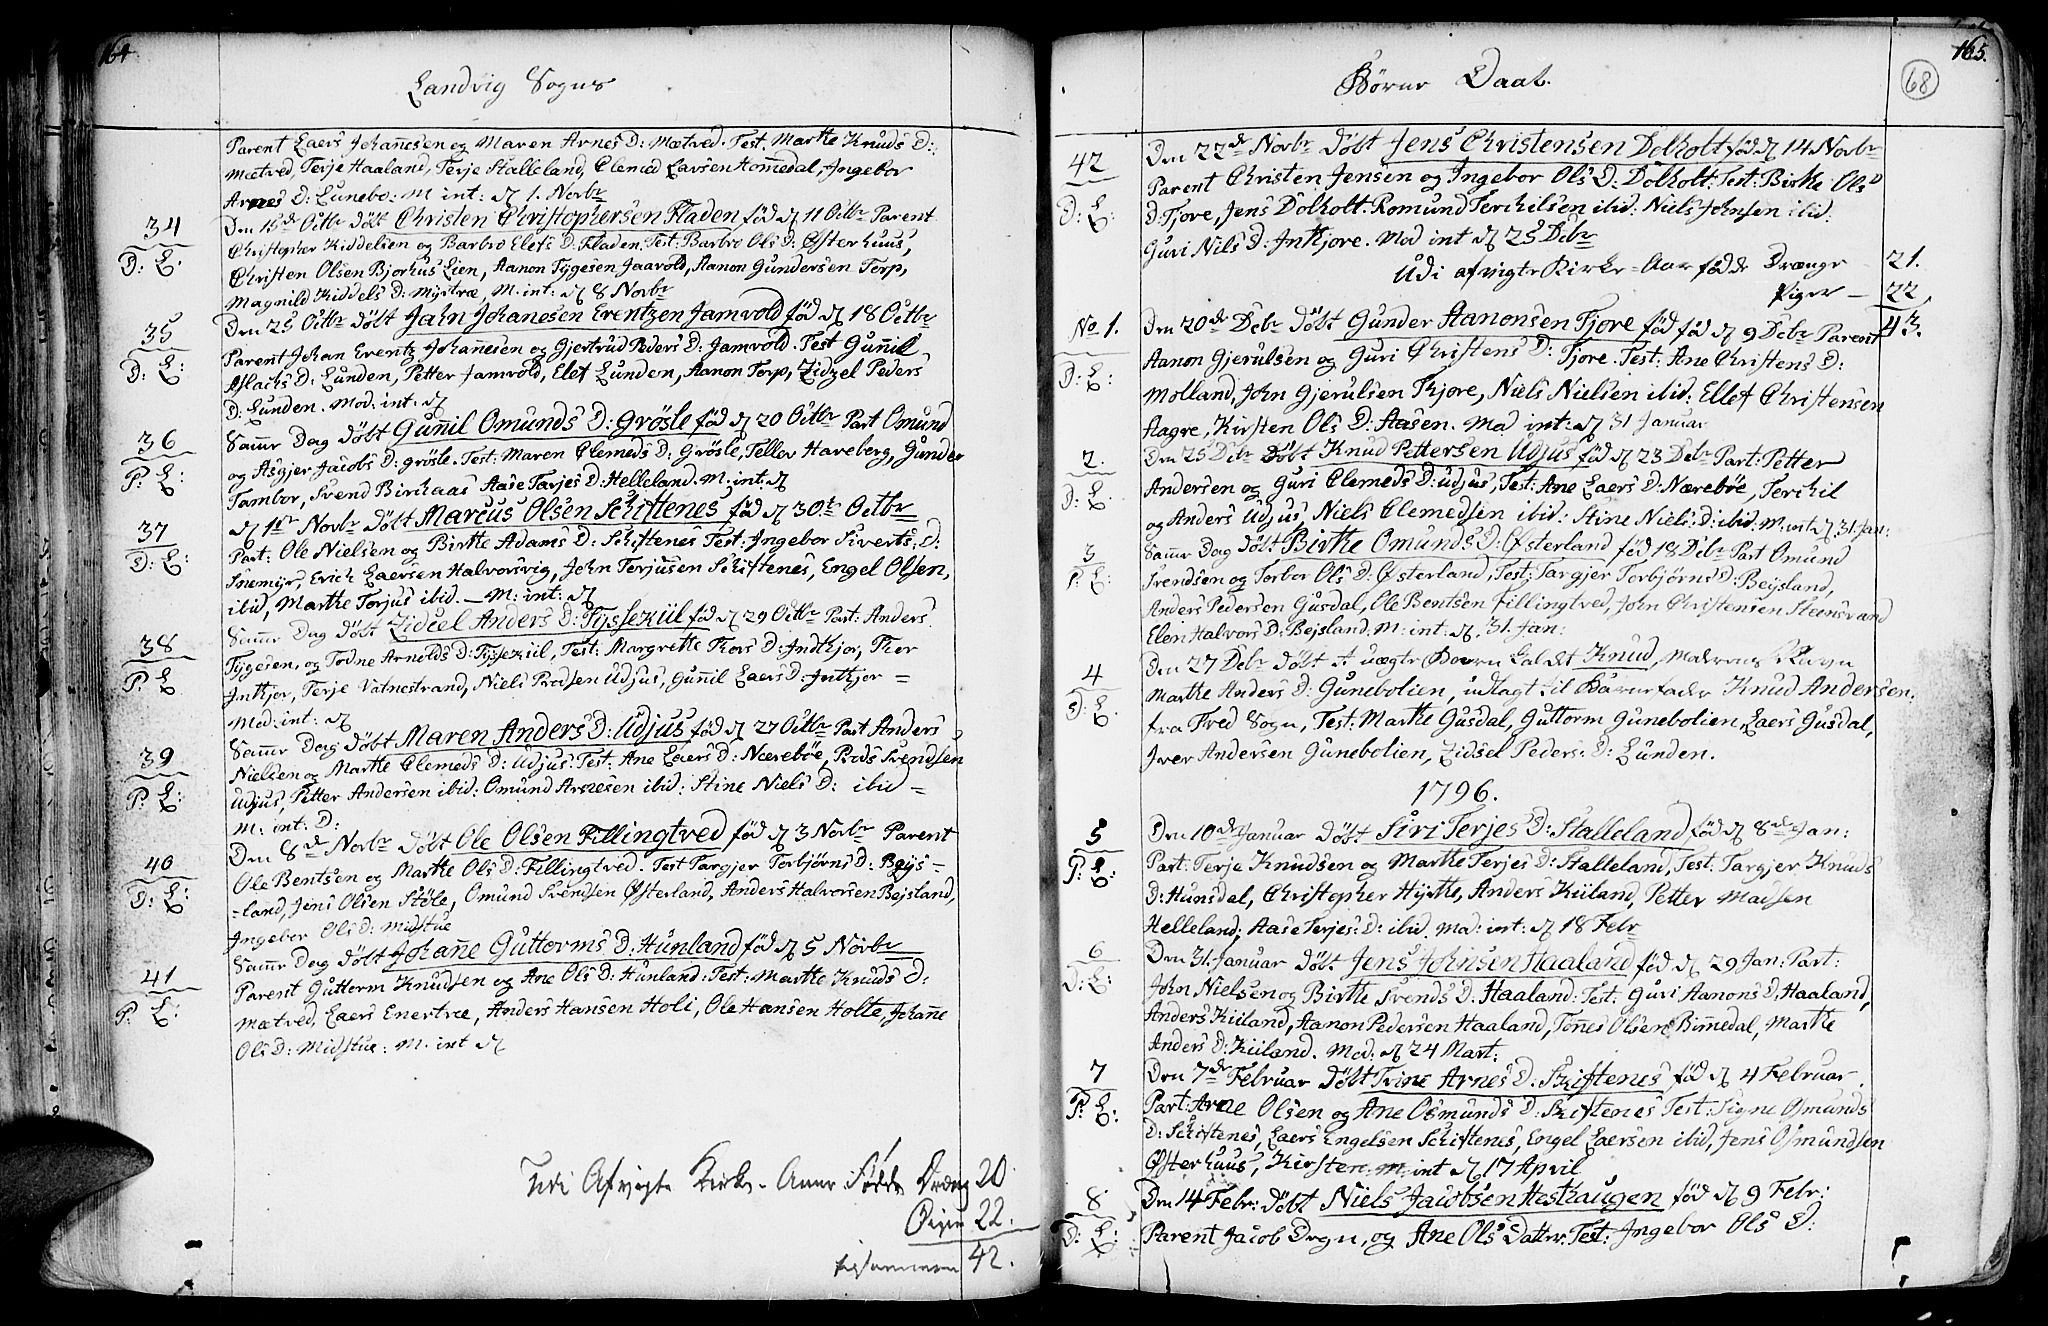 164
Landvig Sogns
Parent Laers Johañesen og Maren Arnes D: Mætved. Test. Marthe Knuds D:
Mætved, Terje Haaland, Terje Stalleland, Clemed Larsen Homedal, Ingebor
Arnes D: Lunebo. M int: d 1. Novbr
34
D: L:
Den 15de Octbr døbt Christen Christophersen Fladen, fød d 11 Octbr Parent
Christopher Kiddelsen og Barbro Elefs D: Fladen. Test: Barbro Ols D: Østerhuus,
Christen Olsen Bjorhus Lien, Aanon Tygesen Jaavold, Aanon Gundersen Torp,
Magnild Kiddels D: Mystræ, M. int: d 8 Novbr
35
D: L:
Den 25 Octbr døbt Jahn Johanesen Erentzen Jamvold fød d 18 Octbr
Parent Johan Erentz Johañesen og Gjertrud Peders D: Jamvold. Test Guñil
Aslachs D: Lunden, Petter Jamvold, Elef Lunden, Aanon Torp, Zidzel Peders
D: Lunden. Mod. int: d
36
P: L:
Samr Dag døbt Guñil Omunds D: Grösle fød d 20 Octbr Part Omund
og Asgjer Jacobs D: Grösle. Test: Maren Clemeds D: Grösle, Tellev Haveberg, Gunder
Tambor, Svend Birkaas Aase Tarjes D: Helleland. M. int: d
37
D: L:
d 1ste Novbr døbt Marcus Olsen Schiftenes fød d 30te Octbr
Part: Ole Nielsen og Birthe Adams D: Schiftenes Test: Ingebor Siverts D:
Snemyr, Erich Laersen Halvorsvig, John Torjusen Schiftenes, Engel Olsen,
ibid, Marthe Torjus ibid. — M: int: d
38
P: L
Samr Dag døbt Zidcel Anders D: Tyssekiil fød d 29 Octbr Part: Anders
Tygesen, og Todne Arnolds D: Tyssekiil, Test: Margrethe Thors D: Indtkjor, Thor
Intkjor, Terje Vatnestrand, Niels Predsen Udjus, Guñil Laers D: Intkjor =
Mod: int: d
39
P: L:
Samr Dag døbt Maren Anders D: Udjus fød d 27 Octbr Part Anders
Nielsen og Marthe Clemeds D: Udjus: Test: Ane Laers D: Nærebøe, Prids Svendsen
Udjus, Petter Andersen ibid: Omund Arnesen ibid: Stine Niels D: ibid =
M: int: D:
40
D: L:
Den 8de Novbr døbt Ole Olsen Fillingtved fød d 3 Novbr Parent
Ole Bentsen og Marthe Ols D: Fillingtved. Test Targjer Torbjørns D: Bejs =
=land, Jens Olsen Støle, Omund Svendsen Østerland, Anders Halvorsen Bejsland,
Ingebor Ols D: Midstue
41
P: L:
Samr Dag døbt Johañe Guttorms D: Hunland fød d 5 Novbr
Parent Guttorm Knudsen og Ane Ols D: Hunland: Test: Marthe Knuds D:
Mætved, Laers Enertræ, Anders Hansen Holi, Ole Hansen Holte, Johañe
Ols D: Midstue: M. int d
Udi Afvigte Kirke-Aar Fødde Dreng 20
Piger 22.
tilsammen 42.
165.
68
Børne Daab.
42
D: L:
Den 22de Novbr døbt Jens Christensen Dolholt fød d 14 Novbr
Parent Christen Jensen og Ingebor Ols D: Dolholt: Test: Birthe Ols
D: Fjore, Jens Dolholt. Romund Terchilsen ibid: Niels Johnsen ibid:
Guri Nils D: Intkjore. Mod int d 25 Decbr
Udi afvigte Kirke=Aar fødde Drænge — 21.
Piger — 22.
43.
No 1.
D: L:
Den 20de Decbr døbt Gunder Aanonsen Fjore fød fød d 9 Decbr Parent
Aanon Gjerulsen og Guri Christens D: Fjore. Test: Ane Christens D:
Molland, John Gjerulsen Fkjore, Niels Nielsen ibid: Ellef Christensen
Aagre, Kirsten Ols D: Aasen. Mod int: d 31 Januar
2.
D: L
Den 25 Decbr døbt Knud Pettersen Udjus fød d 23 Decbr Part: Petter
Andersen og Guri Clemeds D: Udjus, Test: Ane Laers D: Nærebøe, Terchil
og Anders Udjus, Niels Clemedsen ibid: Stine Niels D: ibid: M. int d 31. Jan:
3
P. L:
Samr Dag døbt Birthe Omunds D: Østerland fød 18 Decbr Part Omund
Svendsen og Torbor Ols D: Østerland, Test: Targjer Torbjørns D: Bejsland,
Anders Pedersen Gusdal, Ole Bentsen Fillingtved, John Christensen Steensvand
Elen Halvors D: Bejsland. M: int: d. 31. Jan:
4
D: L.
Den 27 Decbr døbt et uægte Barn kaldet Knud, Moderens Navn
Marthe Anders D: Gunebolien, udlagt til Barnefader Knud Andersen
fra Tved Sogn, Test: Marthe Gusdal, Guttorm Gunebolien, Laers Gusdal,
Iver Andersen Gunebolien, Zidsel Peders: D: Lunden.
1796.
5
P: L:
Den 10de Januar døbt Siri Terjes D: Stalleland, fød d 8de Jan:
Part: Terje Knudsen og Marthe Terjes D: Stalleland, Test: Targjer Knuds
D: Hunsdal, Christopher Hytte, Anders Kiiland, Petter Madsen
Helleland, Aase Terjes: D: ibid. Mod: int: d 18 Febr
6
D: L:
Den 31. Januar døbt Jens Johnsen Haaland fød d 29 Jan: Part:
John Nielsen og Birthe Svends D: Haaland: Test: Guri Aanons D. Haaland,
Anders Kiiland, Aanon Pedersen Haaland, Tønes Olsen Biñedal, Marthe
Anders D: Kiiland. Mod: d 24 Mart:
7
P: L:
Den 7de Februar døbt Trine Arnes D: Skiftenes fød d 4 Februar
Part: Arne Olsen og Ane Osmunds D: Skiftenes Test: Signe Osmunds
D: Schiftenes, Laers Engelsen Schiftenes, Engel Laersen ibid, Jens Osmundsen
Østerhuus, Kirsten: M: int d 17 April
8
D: L:
Den 14 Febr: døbt Niels Jacobsen Hesthaugen fød d 9 Febr:
Parent Jacob Dregn, og Ane Ols Datter. Test: Ingebor Ols D: